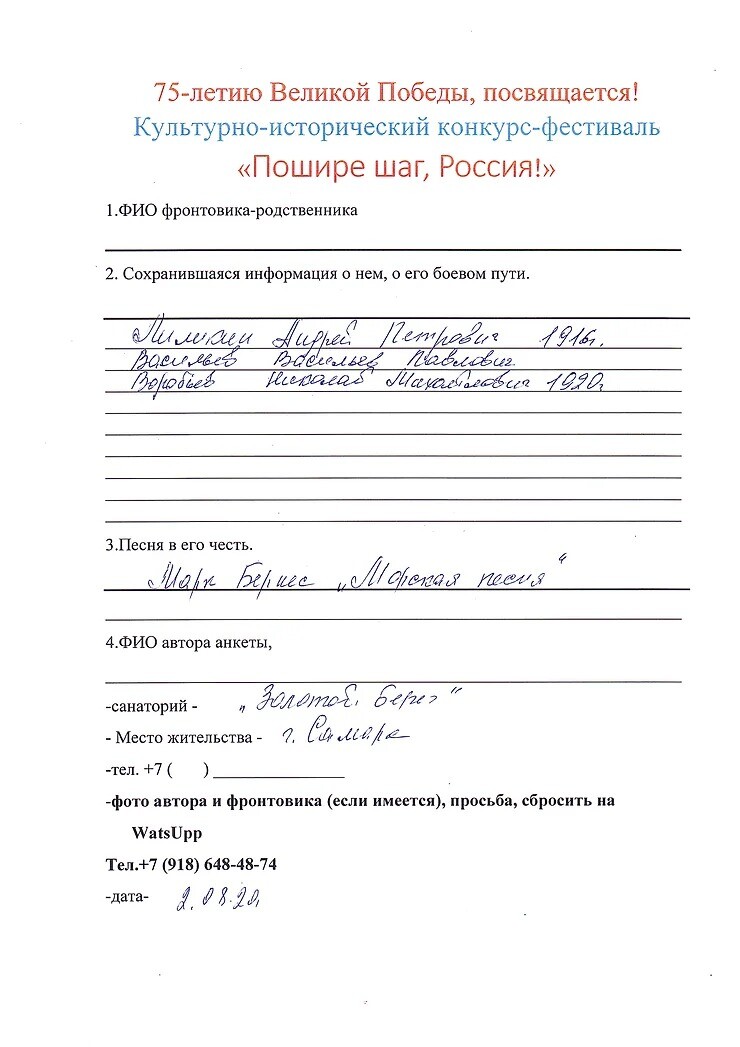 75-летию Великой Победы, посвящается!
Культурно-исторический конкурс-фестиваль
«Пошире шаг, Россия!»
1.ФИО фронтовика-родственника
2. Сохранившаяся информация о нем, о его боевом пути.
Андрей Петрович 1916г.
Васильев Васильев Павлович
Воробьев Николай Михайлович 1920г
3.Песня в его честь.
Марк Бернес „Морская песня“
4.ФИО автора анкеты,
-санаторий - „Золотой берег“
- Место жительства - г. Самара
-тел. +7 ( ) _______________
-фото автора и фронтовика (если имеется), просьба, сбросить на
WatsUpp
Тел.+7 (918) 648-48-74
-дата- 2.08.20г